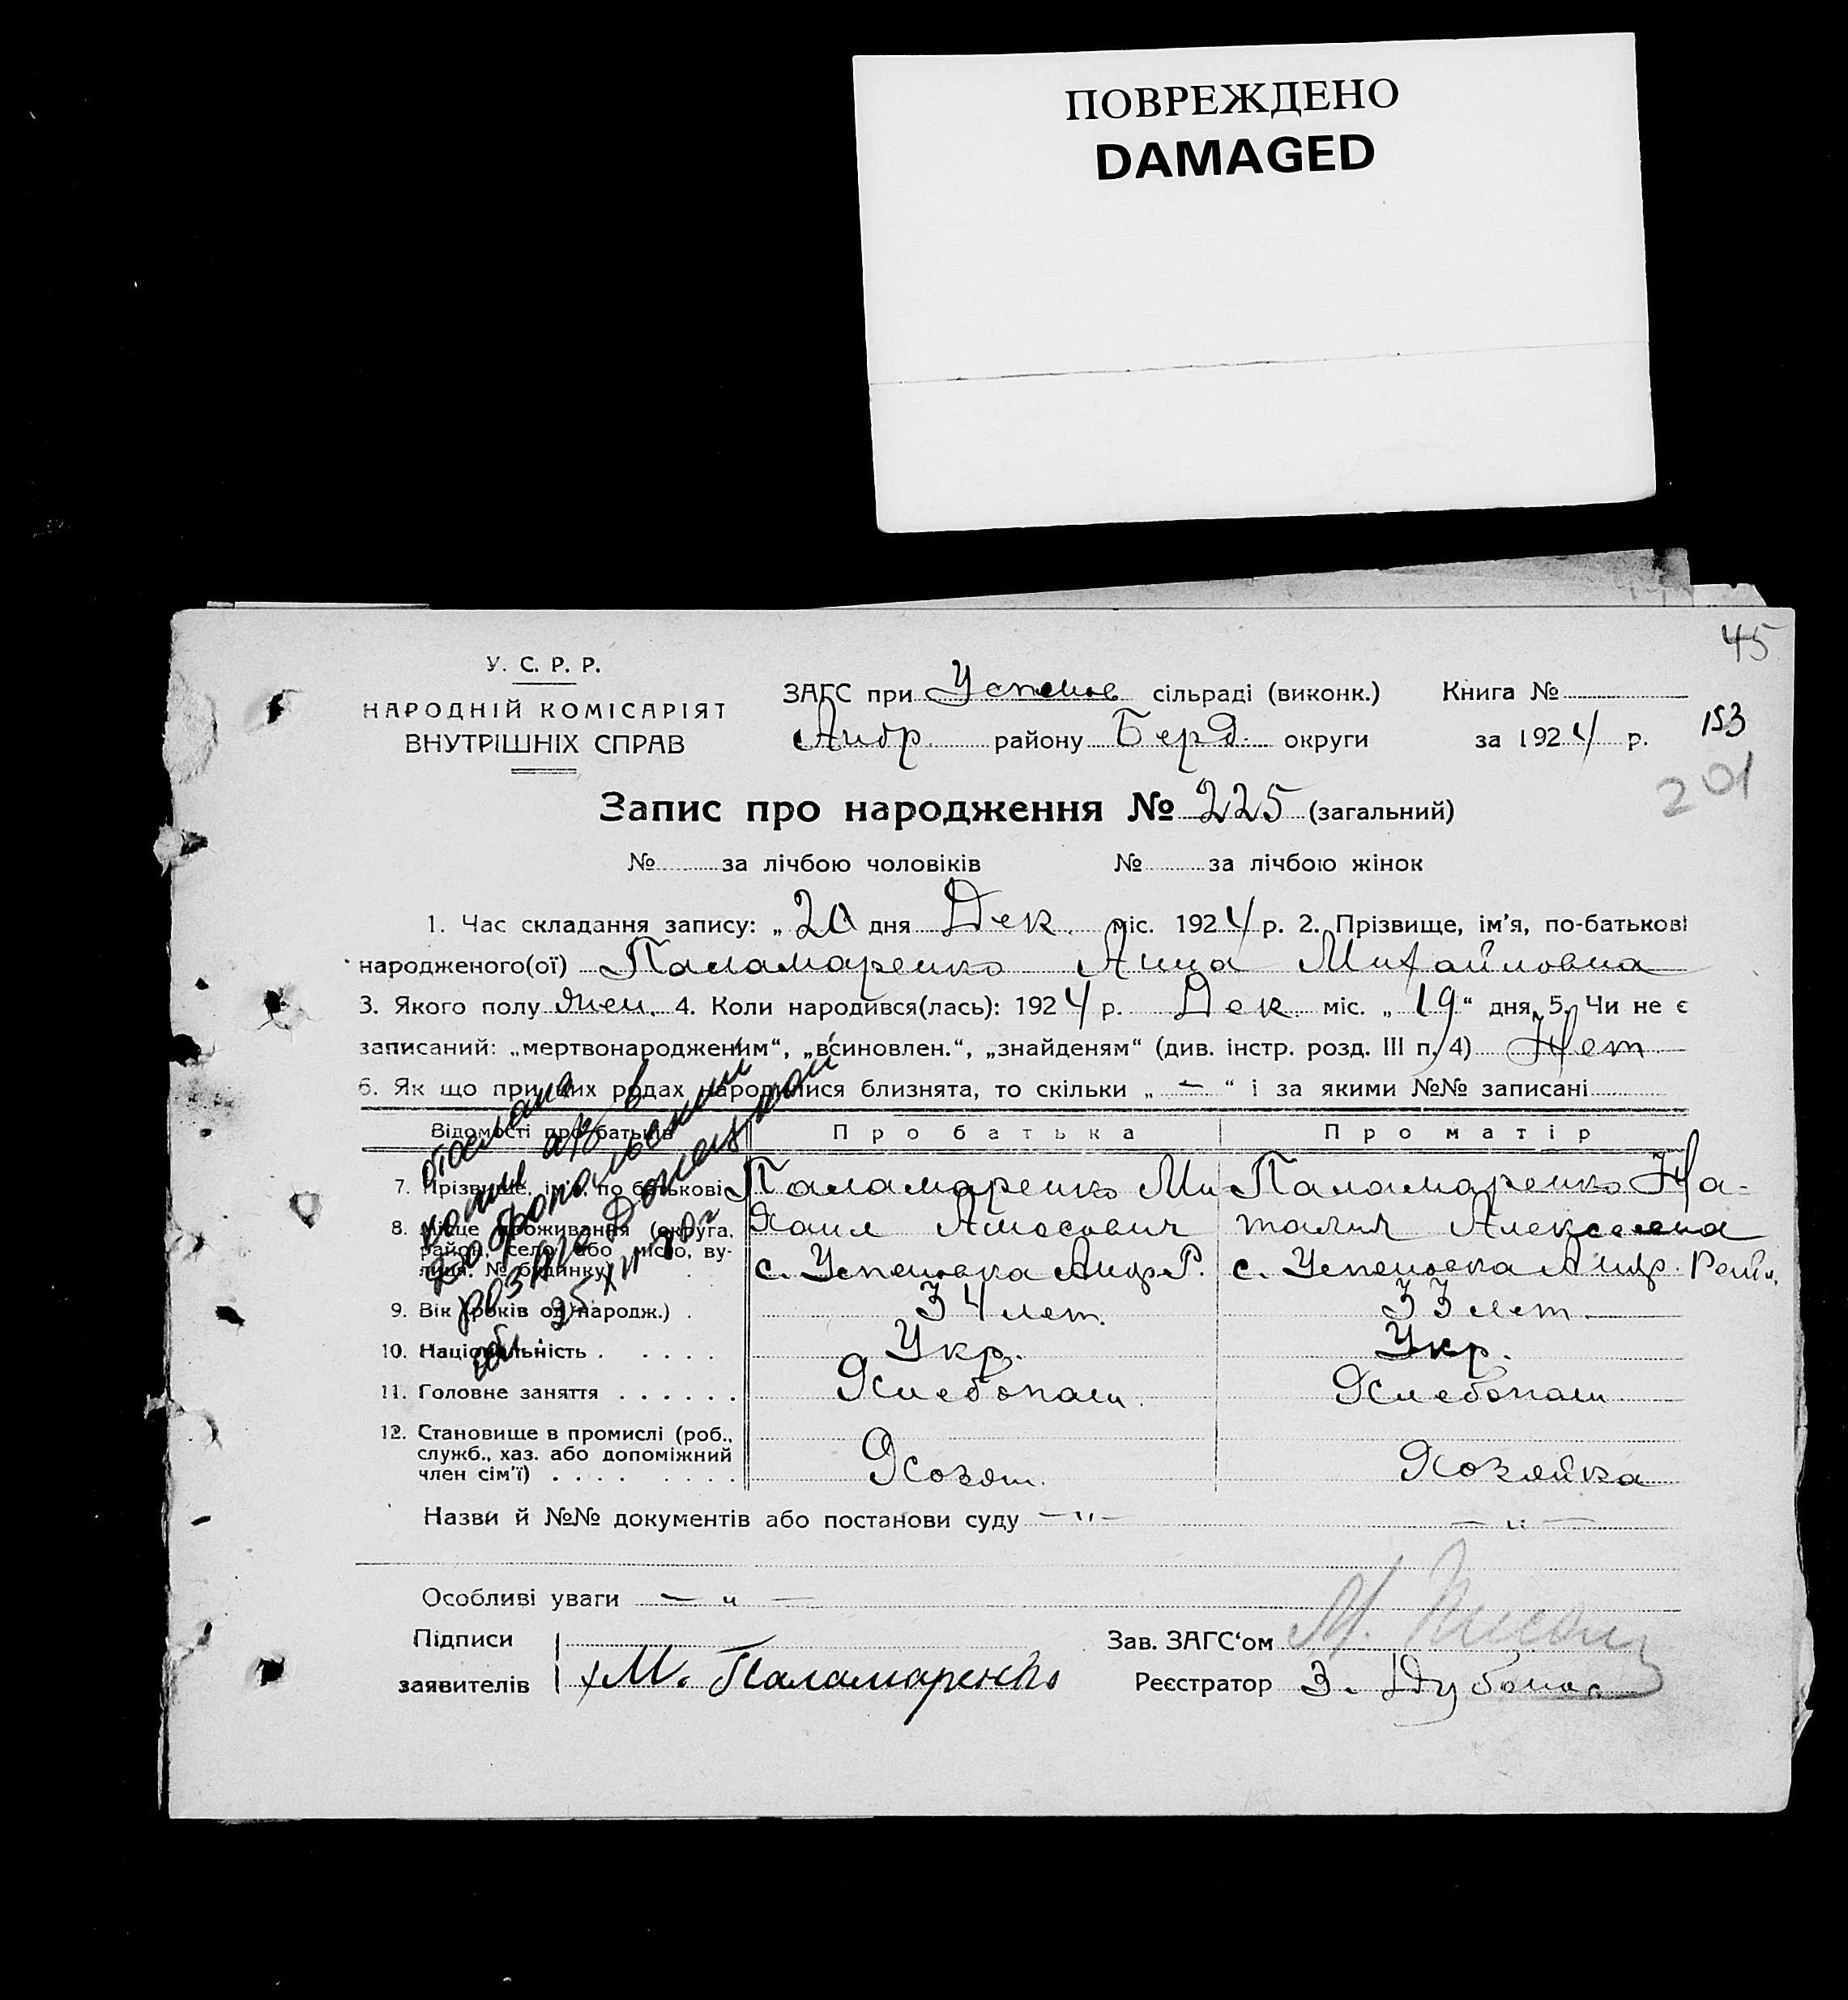 ПОВРЕЖДЕНО
DAMAGED
45
У. С. Р. Р.
НАРОДНІЙ КОМІСАРІЯТ
ВНУТРІШНІХ СПРАВ
ЗАГС при Успенов сільраді (виконк.) Книга №
Андр. району Берд. округи за 1924 р.
153
201
Запис про народження № 225 (загальний)
№ за лічбою чоловіків № за лічбою жінок
1. Час складання запису: „20 дня Дек. міс. 1924 р. 2. Прізвище, ім'я, по-батькові
народженого(ої) Паламаренко Анна Михайловна
3. Якого полу жен. 4. Коли народився(лась): 1924 р. Дек. міс. „19“ дня, 5. Чи не є
записаний: „мертвонародженим“, „всиновлен.“, „знайденям“ (див. інстр. розд. III п. 4) Нет
6. Як що при цих родах народилися близнята, то скільки „ — “ і за якими №№ записані
Відомості про батьків Про батька Про матір
7. Прізвище, ім'я, по батькові Паламаренко Ми Паламаренко На-
хаил Амосович талия Алексеевна
8. Місце проживання (округа, район, село або місто, вулиця, № будинку) с. Успеновка Андр. Р. с. Успеновка Андр.
9. Вік (років од народж.) . 34 лет. 33 лет
10. Національність . . . . . Укр. Укр.
11. Головне заняття . . . . . . Хлебопаш. Хлебопаш
12. Становище в промислі (роб.,
служб., хаз. або допоміжний
член сім'ї) . . . . . . . . Хозяин. Хозяйка
Назви й №№ документів або постанови суду — " — — " —
Особливі уваги — " —
Підписи Зав. ЗАГС‘ом
заявителів М. Паламаренко Реєстратор З.